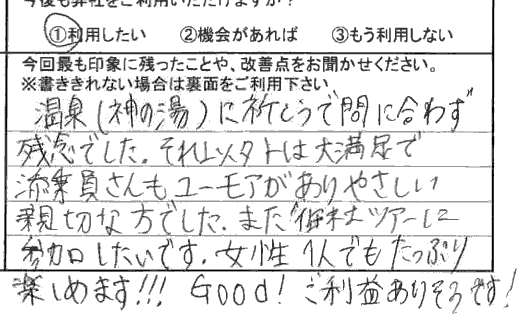 今後も弊社をご利用いただけますか？
①利用したい ②機会があれば ③もう利用しない
今回最も印象に残ったことや、改善点をお聞かせください。
※書ききれない場合は裏面をご利用下さい
温泉(神の湯)に祈とうで間に合わず
残念でした。それ以外は大満足で
添乗員さんもユーモアがありやさしい
親切な方でした。また御社ツアーに
参加したいです。女性1人でもたっぷり
楽しめます!!! Good! ご利益ありそうです!